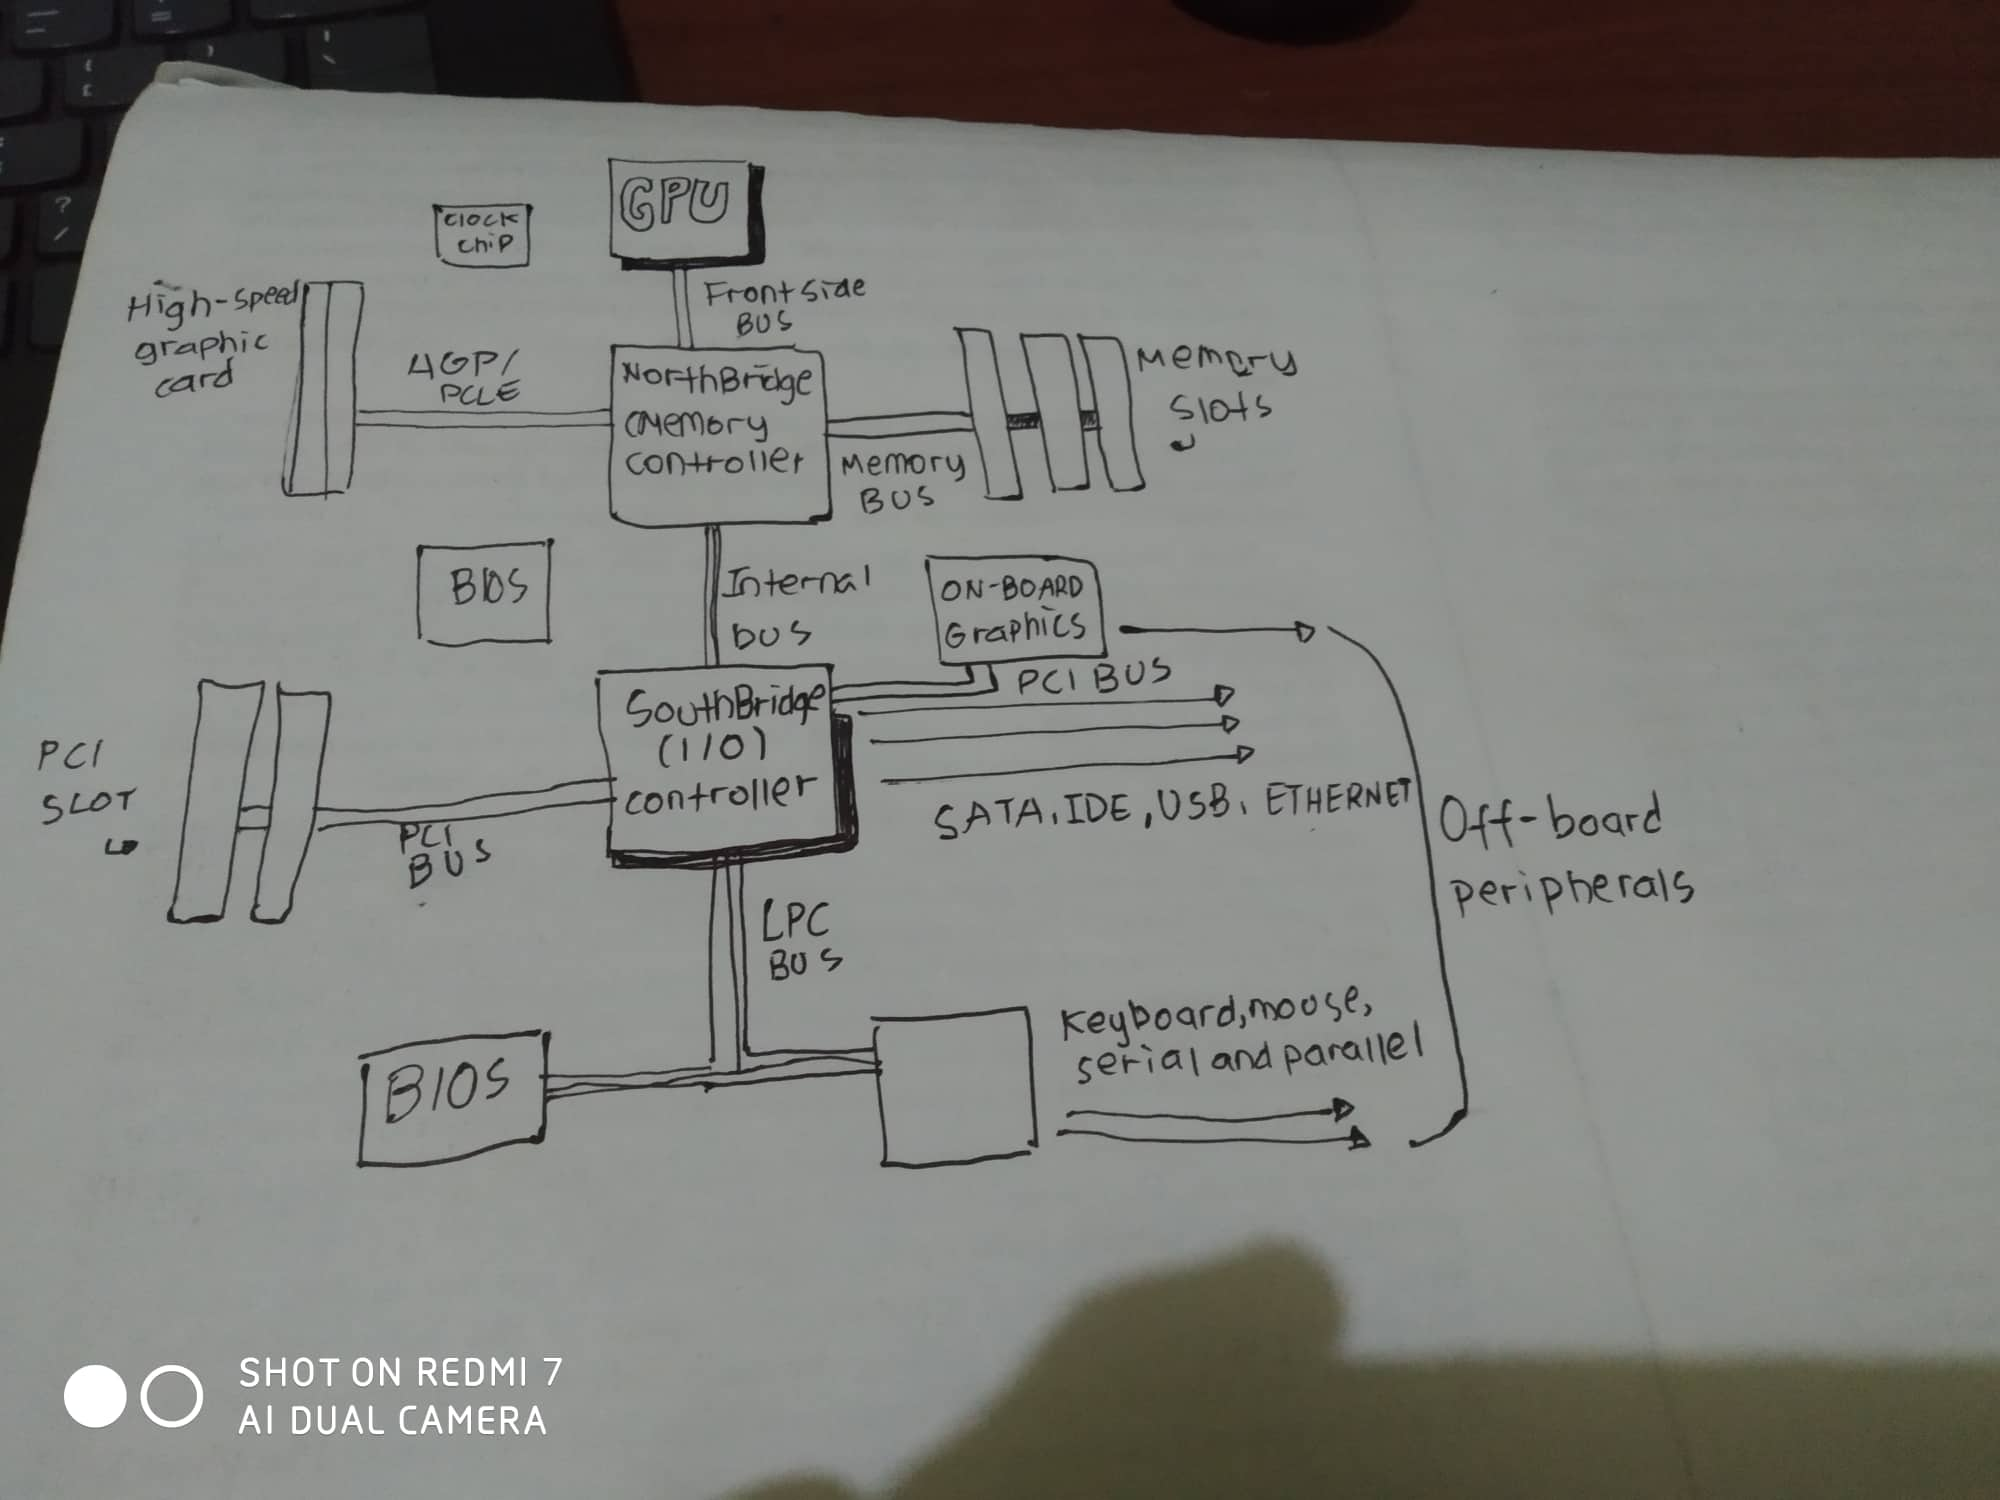 CPU
clock
chip
High-speed
graphic
card
Front side
BUS
AGP/
PCLE
NorthBridge
(Memory
controller
Memory
BUS
Memory
Slots
BIOS
Internal
bus
ON-BOARD
Graphics
PCI BUS
SouthBridge
(I/O)
controller
PCI
SLOT
PCI
BUS
SATA, IDE, USB, ETHERNET
Off-board
peripherals
LPC
BUS
BIOS
Keyboard, mouse,
serial and parallel
SHOT ON REDMI 7
AI DUAL CAMERA